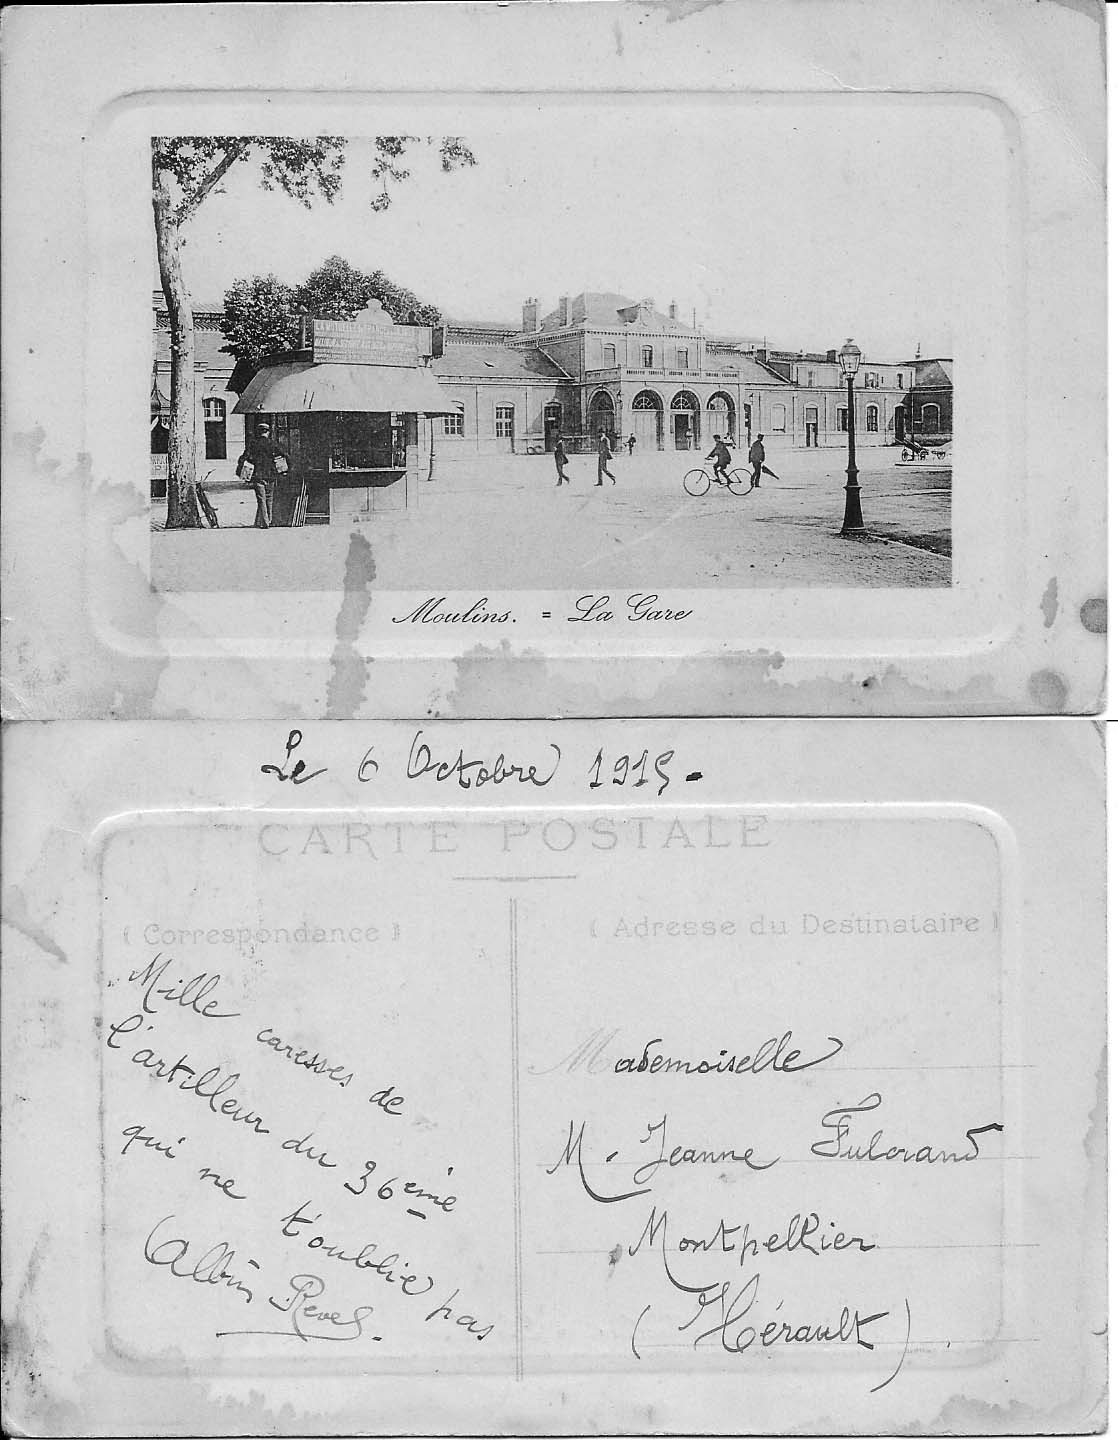 Moulins. = La Gare
Le 6 Octobre 1915.
CARTE POSTALE
(Correspondance)
Mille caresses de
l'artilleur du 36ème
qui ne t'oublie pas
Albin Revel.
(Adresse du Destinataire)
Mademoiselle
M. Jeanne Fulcrand
Montpellier
(Hérault).